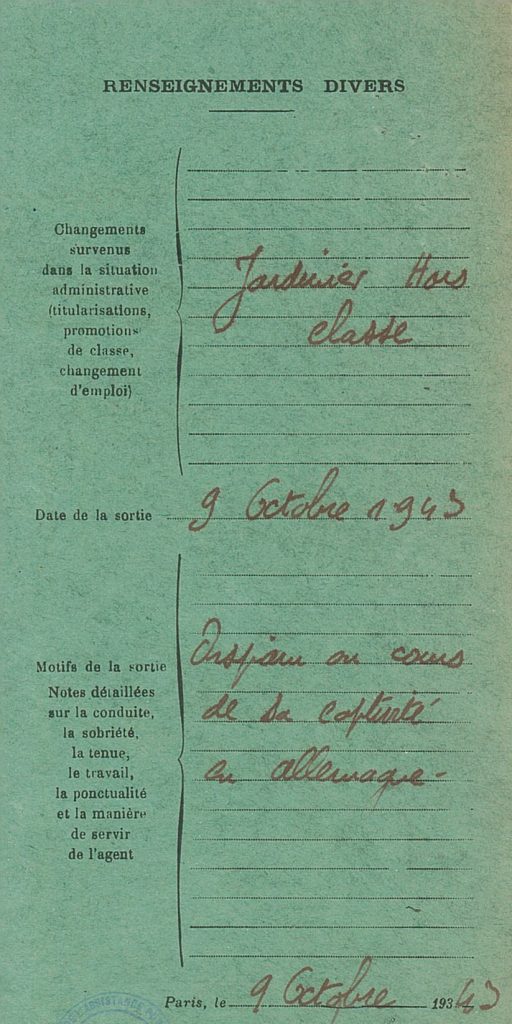 RENSEIGNEMENTS DIVERS
Changements
survenus
dans la situation
administrative
(titularisations,
promotions
de classe,
changement
d'emploi)
Jardinier Hors
classe
Date de la sortie 9 Octobre 1943
Motifs de la sortie
Notes détaillées
sur la conduite,
la sobriété,
la tenue,
le travail,
la ponctualité
et la manière
de servir
de l'agent
Disparu au cours
de sa captivité
en allemagne -
Paris, le 9 Octobre 193 43
ASSISTANCE